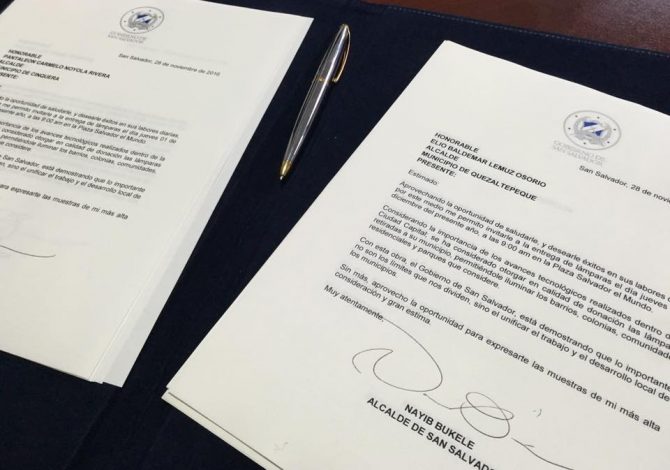 GOBIERNO DE
SAN SALVADOR
San Salvador, 28 de noviembre de 2016
HONORABLE
PANTALEON CARMELO NOYOLA RIVERA
ALCALDE
MUNICIPIO DE CINQUERA
PRESENTE:
la oportunidad de saludarle, y desearle éxitos en sus labores diarias,
me permito invitarle a la entrega de lámparas el día jueves 01 de
año, a las 9:00 am en la Plaza Salvador el Mundo.
importancia de los avances tecnológicos realizados dentro de la
considerado otorgar en calidad de donación las lámparas
permitiéndole iluminar los barrios, colonias, comunidades,
San Salvador, está demostrando que lo importante
sino el unificar el trabajo y el desarrollo local de
para expresarte las muestras de mi más alta
GOBIERNO DE
SAN SALVADOR
San Salvador, 28 de nov
HONORABLE
ELIO BALDEMAR LEMUZ OSORIO
ALCALDE
MUNICIPIO DE QUEZALTEPEQUE
PRESENTE:
Estimado:
Aprovechando la oportunidad de saludarle, y desearle éxitos en sus labores
por este medio me permito invitarle a la entrega de lámparas el día jueves
diciembre del presente año, a las 9:00 am en la Plaza Salvador el Mundo.
Considerando la importancia de los avances tecnológicos realizados dentro d
Ciudad Capital, se ha considerado otorgar en calidad de donación las lámpa
retiradas a su municipio, permitiéndole iluminar los barrios, colonias, comunidad
residenciales y parques que considere.
Con esta obra el Gobierno de San Salvador, está demostrando que lo importante
no son los límites que nos dividen, sino el unificar el trabajo y el desarrollo local de
los municipios.
Sin más, aprovecho la oportunidad para expresarte las muestras de mi más alta
consideración y gran estima.
Muy atentamente,
NAYIB BUKELE
ALCALDE DE SAN SALVADOR